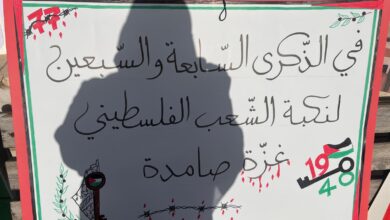 77
في الذّكرى السّابعة والسّبعين
لنكبة الشّعب الفلسطيني
غزّة صامدة
19
48